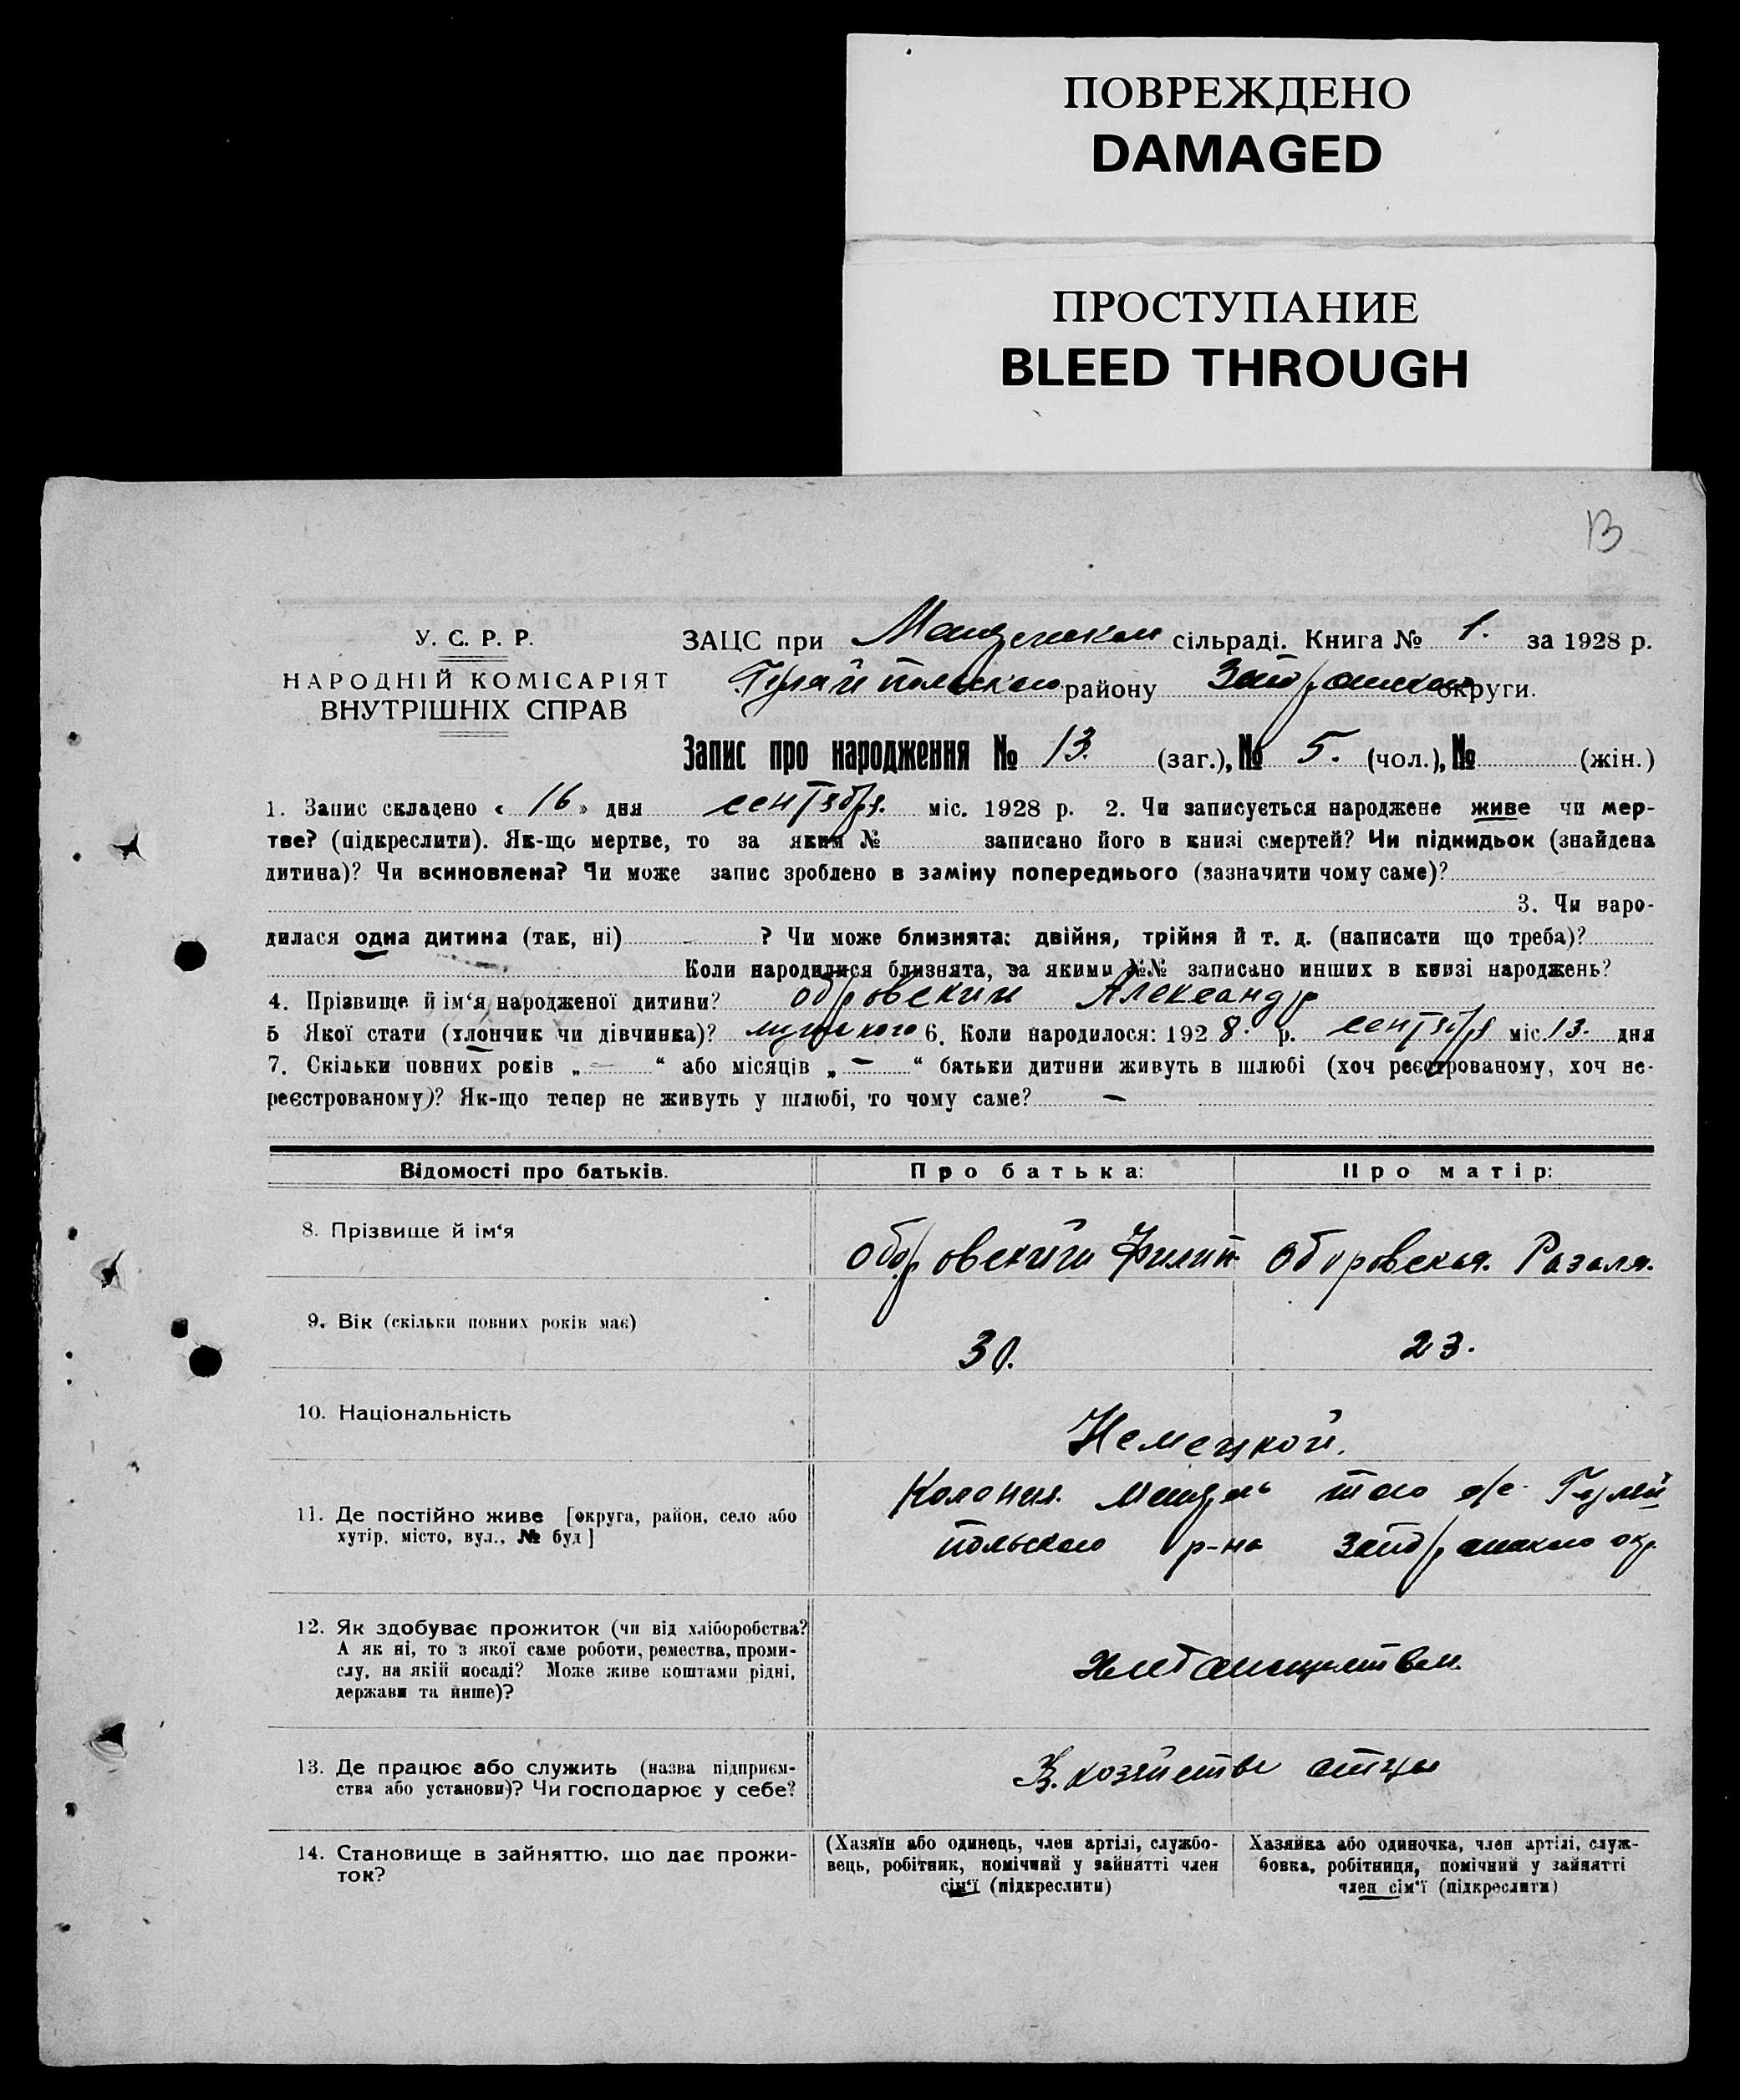 ПОВРЕЖДЕНО
DAMAGED
ПРОСТУПАНИЕ
BLEED THROUGH
13
У. С. Р. Р.
НАРОДНІЙ КОМІСАРІЯТ
ВНУТРІШНІХ СПРАВ
ЗАЦС при сільраді. Книга № 1. за 1928 р.
району округи.
Запис про народження № 13. (заг.), № 5. (чол.), № (жін.)
1. Запис складено « 16 » дня сентября. міс. 1928 р. 2. Чи записується народжене живе чи мер-
тве? (підкреслити). Як-що мертве, то за яким № записано його в книзі смертей? Чи підкидьок (знайдена
дитина)? Чи всиновлена? Чи може запис зроблено в заміну попереднього (зазначити чому саме)?
3. Чи наро-
дилася одна дитина (так, ні) ? Чи може близнята: двійня, трійня й т. д. (написати що треба)?
Коли народилися близнята, за якими №№ записано инших в книзі народжень?
4. Прізвище й ім‘я народженої дитини? Обровский Александр
5 Якої стати (хлопчик чи дівчинка)? мужского 6. Коли народилося: 1928. р. сентября міс. 13. дня
7. Скільки повних років „ — “ або місяців „ — “ батьки дитини живуть в шлюбі (хоч реєстрованому, хоч не-
реєстрованому)? Як-що тепер не живуть у шлюбі, то чому саме? —
Відомості про батьків. Про батька: Про матір:
8. Прізвище й ім‘я Обровский Филип Обровская. Разаля.
9. Вік (скільки повних років має) 30. 23.
10. Національність Немецкой.
11. Де постійно живе [округа, район, село або Колония. того с/с. Гуляй
хутір, місто, вул., № буд] польского р-на окр.
12. Як здобуває прожиток (чи від хліборобства?
А як ні, то з якої саме роботи, ремества, проми-
слу, на якій посаді? Може живе коштами рідні,
держави та инше)?
13. Де працює або служить (назва підприєм- В. хозяйстве отца
ства або установи)? Чи господарює у себе?
14. Становище в зайняттю, що дає прожи-
ток?
(Хазяїн або одинець, член артілі, службо-
вець, робітник, помічний у зайнятті член
сім‘ї (підкреслити)
Хазяйка або одиночка, член артілі, служ-
бовка, робітниця, помічний у зайнятті
член сім‘ї (підкреслити)